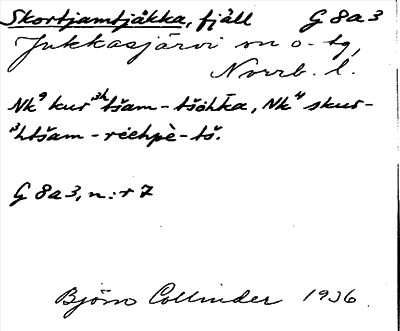 Skortjamtjåkka, fjäll G 8 a 3
Jukkasjärvi sn o. tg,
Norrb. l.
Nk⁹ kur³ʰtšam-tšohka, Nk⁴ skur-
³htšam-riehpè-tš.
G 8 a 3, n:r 7
Björn Collinder 1936.